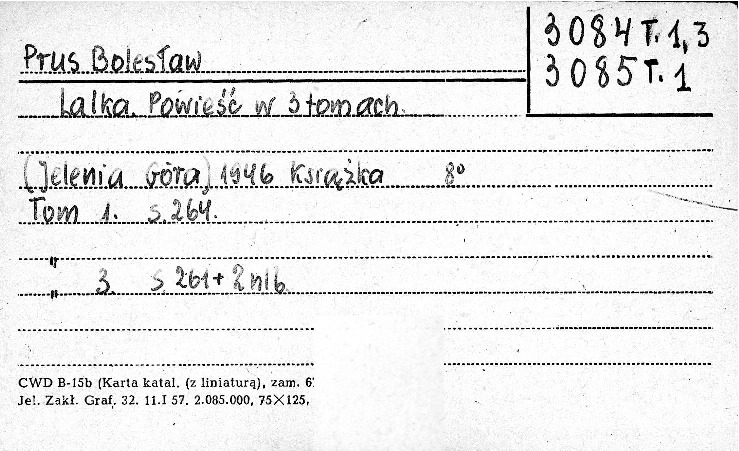 Prus Bolesław
3084 T. 1,3
3085 T. 1
Lalka. Powieść w 3 tomach.
(Jelenia Góra) 1946 Książka 8°
Tom 1. s. 264.
"
" 3. s 261 + 2 nlb
CWD B-15b (Karta katal. (z liniaturą), zam. 6
Jel. Zakł. Graf. 32. 11.I 57. 2.085.000, 75×125,